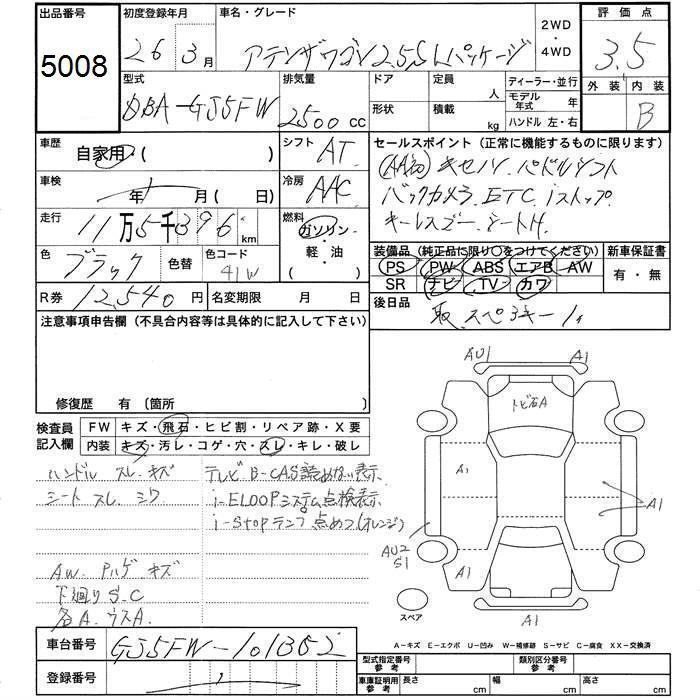 出品番号
5008
初度登録年月
26年3月
車名・グレード
アテンザワゴン 2.5S Lパッケージ
2WD
・
4WD
評価点
3.5
外装 内装
B
型式
DBA-GJ5FW
排気量
2500cc
ドア
形状
定員 人
積載 kg
ディーラー・並行
モデル年式 年
ハンドル 左・右
車歴
自家用・( )
シフト AT
車検
年 月 ( 日)
冷房 AAC
走行
11万5千396km
燃料
ガソリン・
軽・油
( )
色 ブラック
色替
色コード 41W
R券 12,540円
名変期限 月 日
セールスポイント(正常に機能するものに限ります)
キセノン.パドルシフト
バックカメラ.ETC.iストップ.
キーレスゴー.シートH.
装備品(純正品に限り〇をつけてください)
PS PW ABS エアB AW
SR ナビ TV カワ
新車保証書
有・無
後日品
取.スペアキー1ヶ
注意事項申告欄(不具合内容等は具体的に記入して下さい)
修復歴 有〔箇所 〕
検査員記入欄
FW キズ・飛石・ヒビ割・リペア跡・X要
内装 キズ・汚レ・コゲ・穴・スレ・キレ・破レ
ハンドル スレ.キズ
シート スレ.シワ
テレビ B-CAS読めない表示
i-ELOOPシステム点検表示
i-Stopランプ点めつ(オレンジ)
AW.キズ
下廻り S.C
各A.ウスA.
AU1
A1
トビ石A
A1
A1
AU2
S1
A1
A1
スペア
A-キズ E-エクボ U-凹み W-補修跡 S-サビ C-腐食 XX-交換済
車台番号
GJ5FW-101302
登録番号
型式指定番号
参考
類別区分番号
参考
車庫証明用
参考
長さ cm
幅 cm
高さ cm